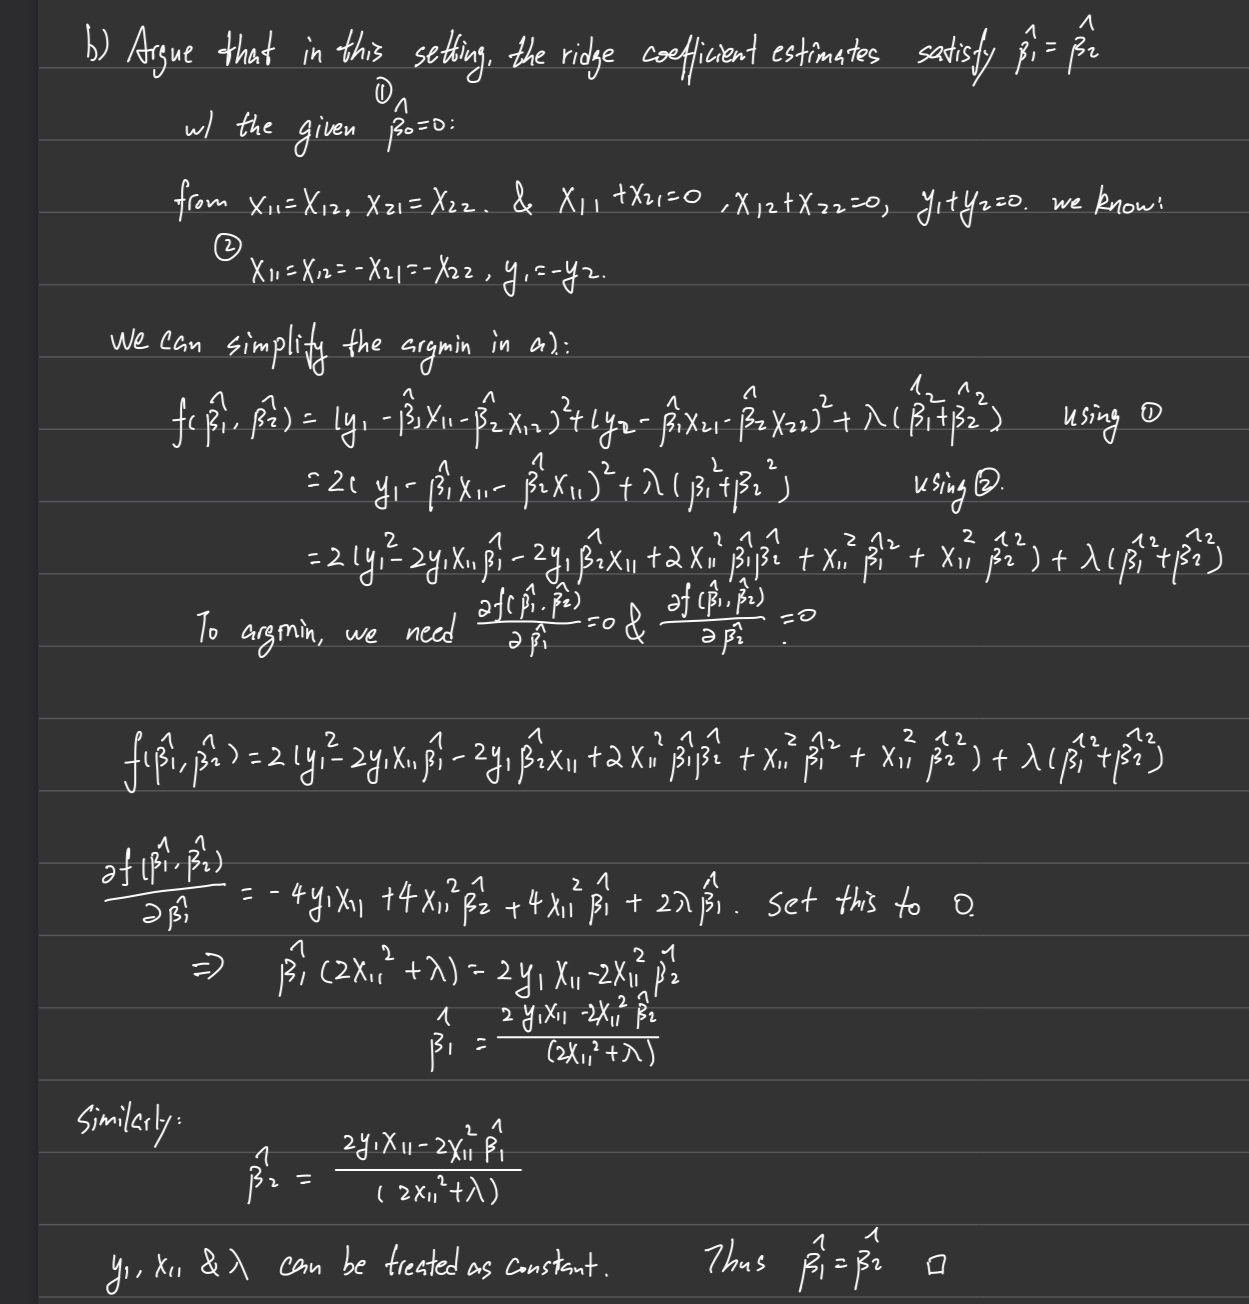 b) Argue that in this setting, the ridge coefficient estimates satisfy β̂₁ = β̂₂
①
w/ the given β̂₀=0:
from X₁₁=X₁₂, X₂₁=X₂₂. & X₁₁+X₂₁=0, X₁₂+X₂₂=0, y₁+y₂=0. we know:
② X₁₁=X₁₂=-X₂₁=-X₂₂, y₁=-y₂.
We can simplify the argmin in a):
f(β̂₁, β̂₂) = (y₁ - β̂₁X₁₁ - β̂₂X₁₂)² + (y₂ - β̂₁X₂₁ - β̂₂X₂₂)² + λ(β̂₁²+β̂₂²) using ①
= 2( y₁ - β̂₁X₁₁ - β̂₂X₁₁)² + λ(β₁²+β₂²) using ②.
= 2(y₁² - 2y₁X₁₁β̂₁ - 2y₁β̂₂X₁₁ + 2X₁₁²β̂₁β̂₂ + X₁₁²β̂₁² + X₁₁²β̂₂²) + λ(β̂₁²+β̂₂²)
To argmin, we need ∂f(β̂₁,β̂₂)/∂β̂₁ = 0 & ∂f(β̂₁,β̂₂)/∂β̂₂ = 0.
f(β̂₁, β̂₂) = 2(y₁² - 2y₁X₁₁β̂₁ - 2y₁β̂₂X₁₁ + 2X₁₁²β̂₁β̂₂ + X₁₁²β̂₁² + X₁₁²β̂₂²) + λ(β̂₁²+β̂₂²)
∂f(β̂₁,β̂₂)/∂β̂₁ = -4y₁X₁₁ + 4X₁₁²β̂₂ + 4X₁₁²β̂₁ + 2λβ̂₁. set this to 0.
⇒ β̂₁(2X₁₁²+λ) = 2y₁X₁₁ - 2X₁₁²β̂₂
β̂₁ = 2y₁X₁₁ - 2X₁₁²β̂₂/(2X₁₁²+λ)
Similarly:
β̂₂ = 2y₁X₁₁ - 2X₁₁²β̂₁/(2X₁₁²+λ)
y₁, X₁₁ & λ can be treated as constant. Thus β̂₁=β̂₂ □